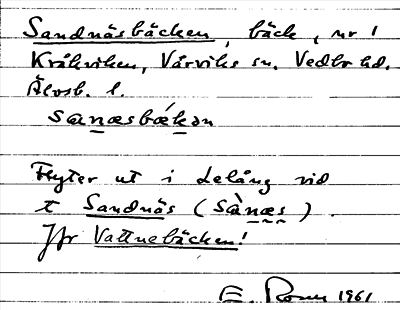 Sandnäsbäcken, bäck, nr 1
Kråkviken, Vårviks sn. Vedbo hd.
Älvsb. l.
sanæsbækən
Flyter ut i Lelång vid
t Sandnäs (sànæs).
Jfr Vattnebäcken!
E. 1961